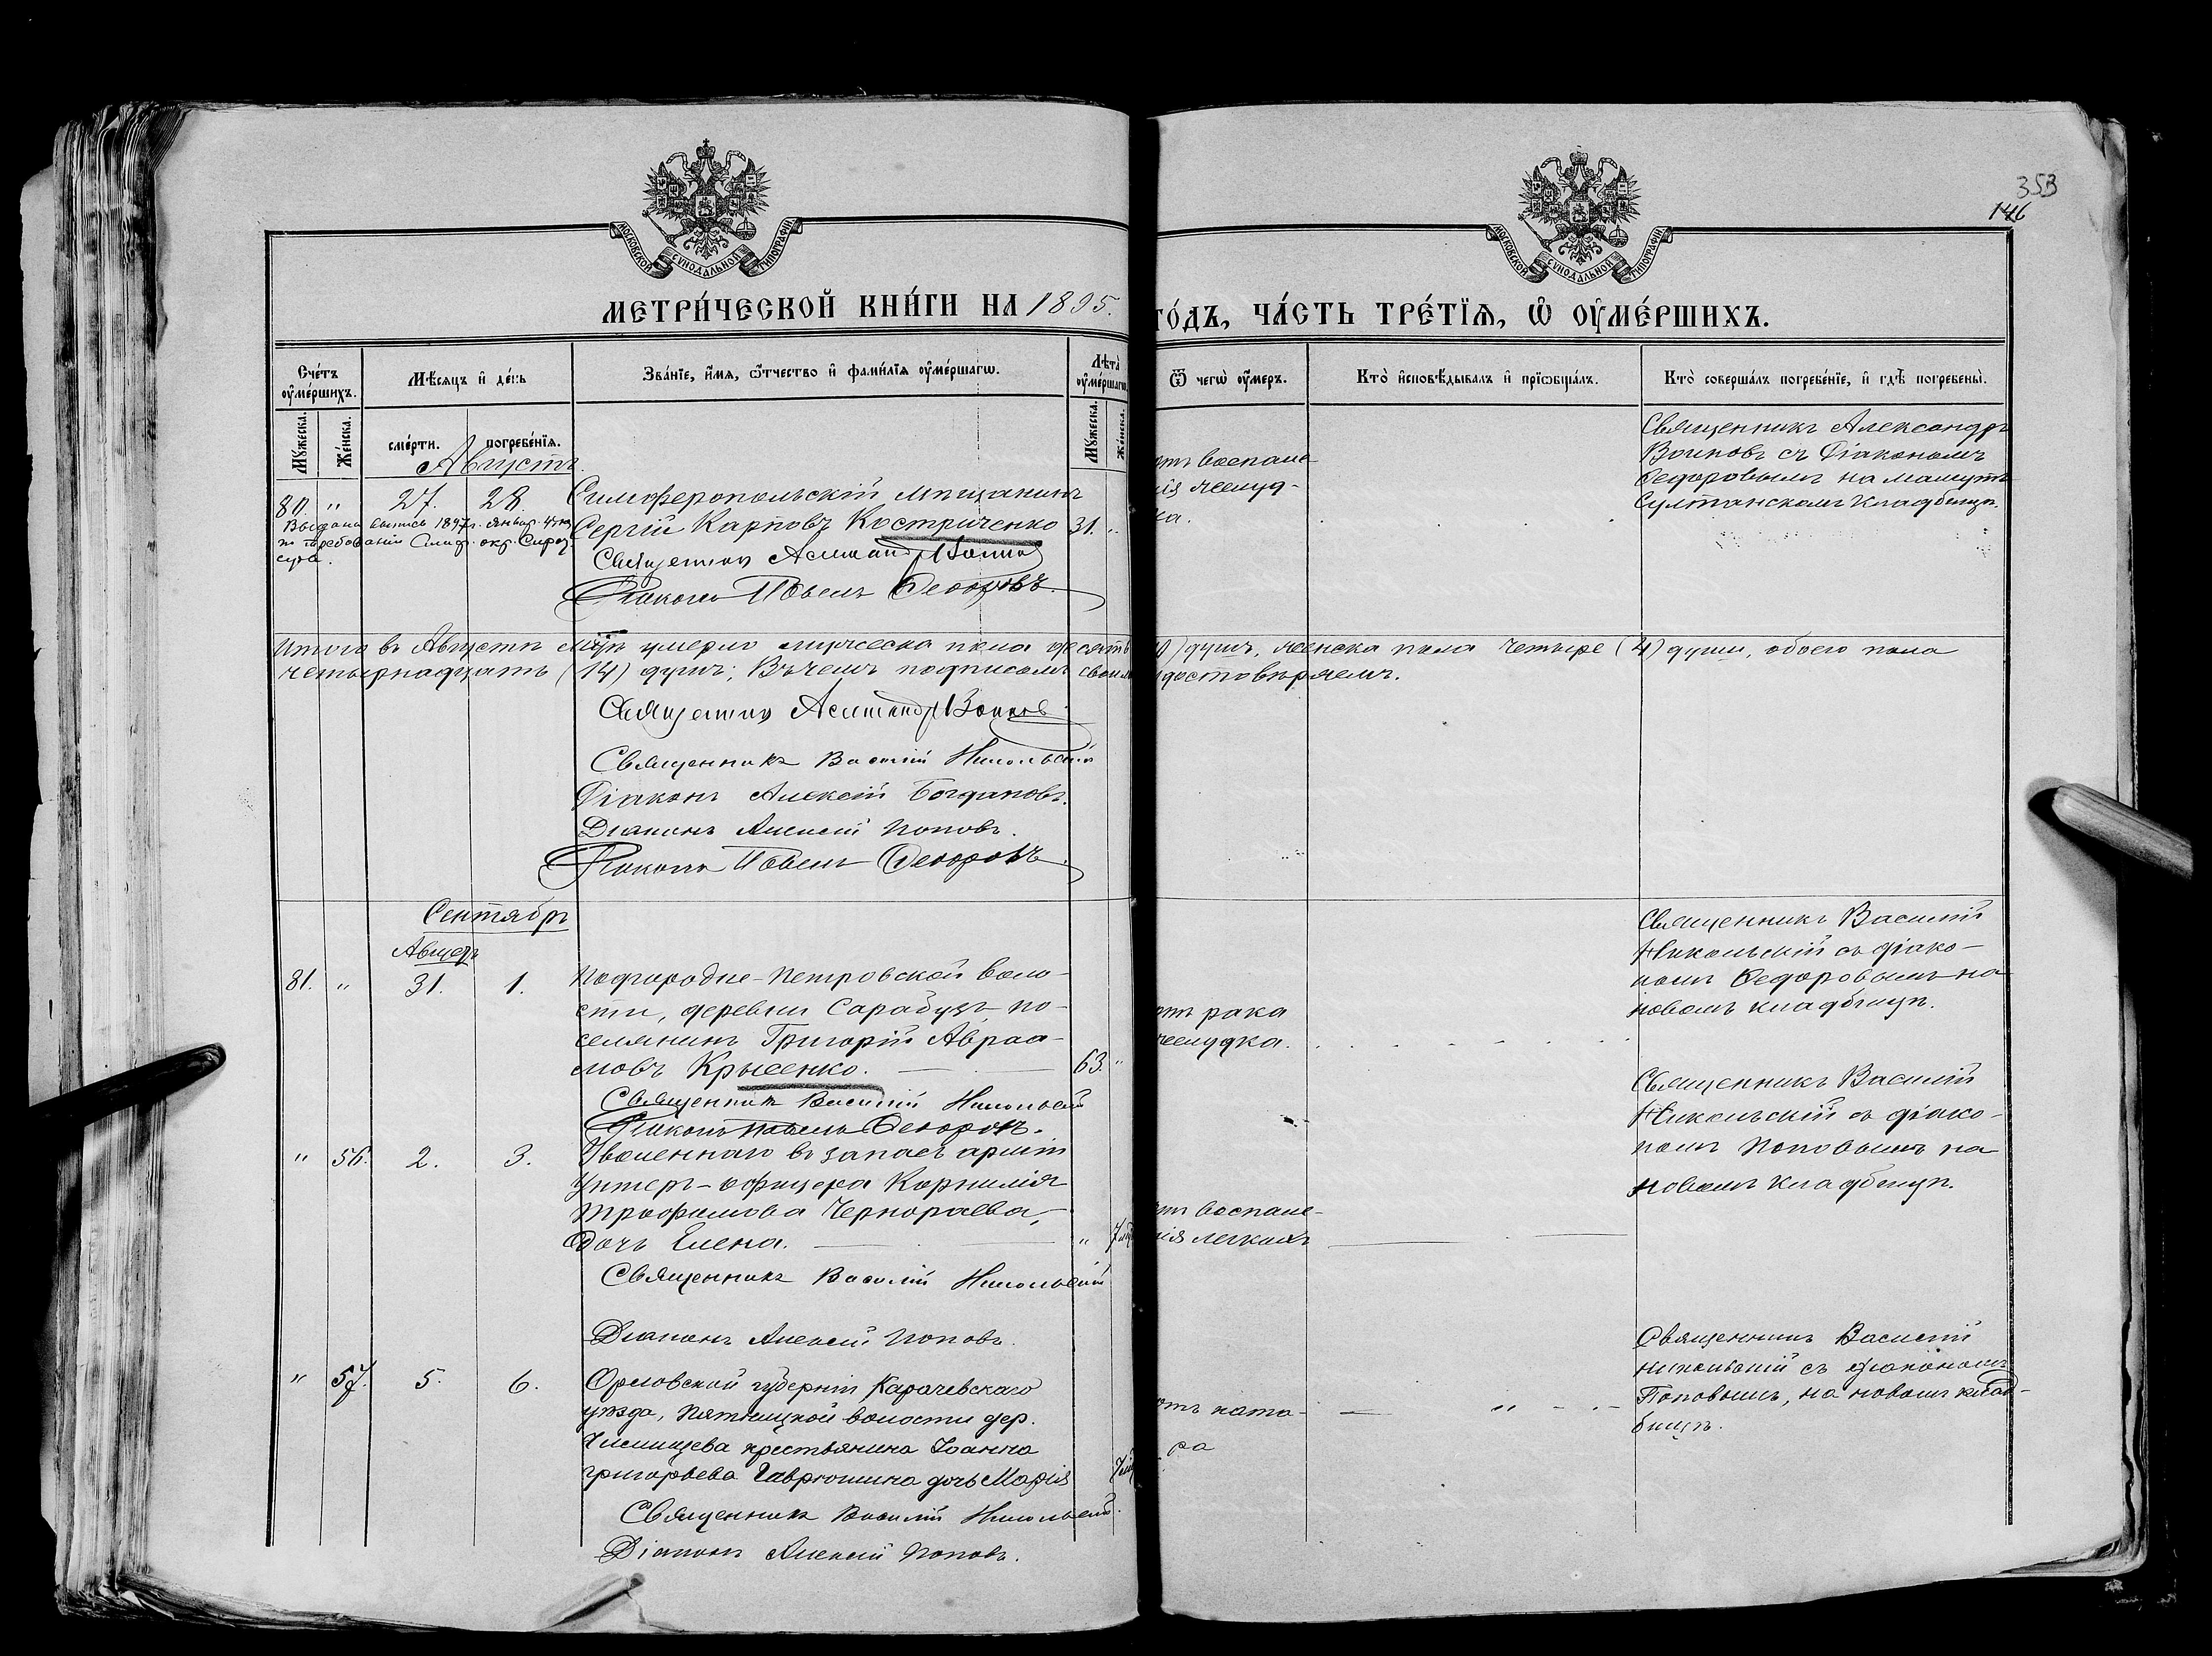 353
146
МОСКОВСКОЙ СУНОДАЛЬНОЙ ТИПОГРАФІИ
МОСКОВСКОЙ СУНОДАЛЬНОЙ ТИПОГРАФІИ
МЕТРИ́ЧЕСКОЙ КНИ́ГИ НА 1895.
ГО́ДЪ, ЧА́СТЬ ТРЕ́ТЇѦ, Ѡ҆ ОУ҆МЕ́РШИХЪ.
Сче́тъ оу҆ме́ршихъ.
Мѣ́сѧцъ и҆ де́нь
Зва́нїе, и҆́мѧ, ѻ҆́тчество и҆ фами́лїѧ оу҆ме́ршагѡ.
Лѣ̑та оу҆ме́ршагѡ.
Ѿ чегѡ̀ оу҆́меръ.
Кто̀ и҆сповѣ́дывалъ и҆ прїѡбща́лъ.
Кто̀ соверша́лъ погребе́нїе, и҆ гдѣ̀ погребены̀.
Мꙋ́жеска.
Же́нска.
сме́рти.
погребе́нїѧ.
Мꙋ́жеска.
Же́нска.
Августъ.
80. " 27. 28. Симферопольскій мѣщанинъ
Сергій Карповъ Костриченко 31. "
Выдана выпись 1897г. Январ.
по требованію Симф. окр. Сирот.
суда.
Священникъ Александръ Воиновъ
Діаконъ Павелъ Ѳеодоровъ.
отъ воспале-
ія желуд-
ка.
Священникъ Александръ
Воиновъ съ Діакономъ
Ѳедоровымъ на мамутъ
Султанскомъ Кладбищѣ.
Итого въ Августѣ мцѣ умерло мужеска пола десять (10) душъ, женска пола четыре (4) души, обоего пола
четырнадцать (14) душъ; Въ чемъ подписомъ своимъ удостовѣряемъ.
Священникъ Александръ Воиновъ
Священникъ Василій Никольскій
Діаконъ Алексій Богдановъ.
Діаконъ Алексій Поповъ.
Діаконъ Павелъ Ѳеодоровъ
Сентябрь
Август
81. " 31. 1. Подгородне-Петровской воло-
сти, деревни Сарабузъ по-
селянинъ Григорій Авраа-
мовъ Крысенко. 63. "
Священникъ Василій Никольскій
Діаконъ Павелъ Ѳеодоровъ.
отъ рака
желудка.
Священникъ Василій
Никольскій съ діако-
номъ Ѳедоровымъ на
новомъ кладбищѣ.
" 56. 2. 3. Уволеннаго въ запасъ арміи
Унтеръ-офицера Корнилія
Трофимова Чернораева,
дочь Елена. "
Священникъ Василій Никольскій
Діаконъ Алексій Поповъ.
отъ воспале-
нія легкихъ
Священникъ Василій
Никольскій съ діако-
номъ Поповымъ на
новомъ кладбищѣ.
" 57. 5. 6. Орловской губерніи Карачевскаго
уѣзда, Пятницкой волости дер.
крестьянина Іоанна
Григорьева Гаврюшина дочь Марія
Священникъ Василій Никольскій.
Діаконъ Алексій Поповъ.
отъ ката-
ра
Священникъ Василій
Никольскій съ діакономъ
Поповымъ, на новомъ клад-
бищѣ.